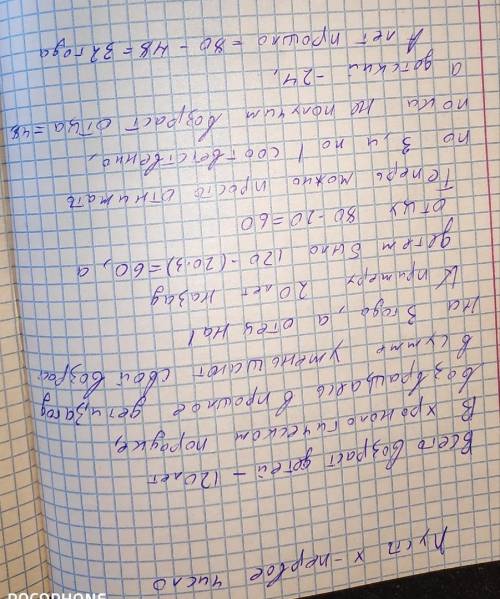 Пусть x - первое число
Всего возраст детей - 120 лет
В хронологическом порядке,
возвращаясь в прошлое дети за год
в сумме уменьшают свой возраст
на 3 года, а отец на 1
К примеру 20 лет назад
детям было 120 - (20·3) = 60, а
отцу 80 - 20 = 60
Теперь можно просто отнимать
по 3, и по 1 соответственно,
пока не получим возраст отца = 48,
а детский - 24,
А лет прошло = 80 - 48 = 32 года
POCOPHONE